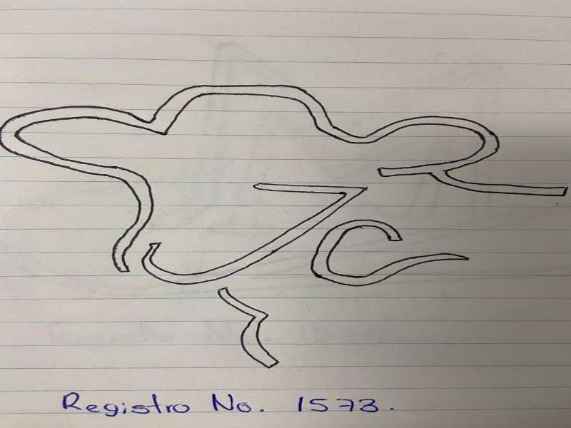 Registro No. 1573.